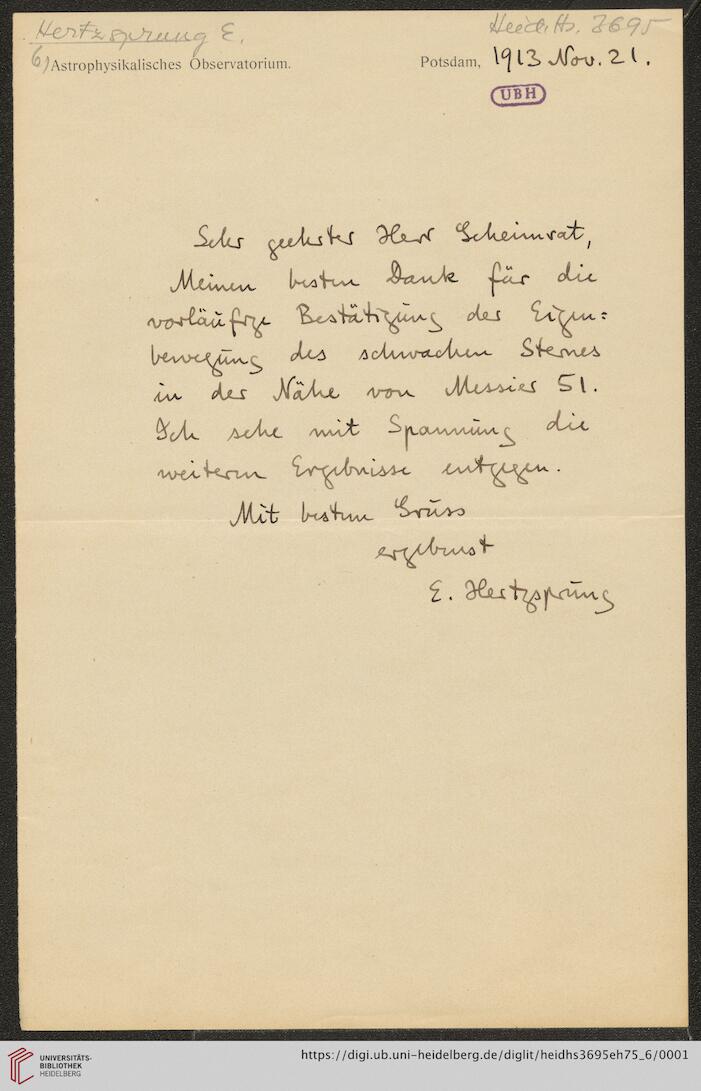 Hertzsprung E.
Heid. Hs. 3695
6) Astrophysikalisches Observatorium.
Potsdam, 1913 Nov. 21.
UBH
Sehr geehrter Herr Geheimrat,
Meinen besten Dank für die
vorläufige Bestätigung der Eigen=
bewegung des schwachen Sternes
in der Nähe von Messier 51.
Ich sehe mit Spannung die
weiteren Ergebnisse entgegen.
Mit bestem Gruss
ergebenst
E. Hertzsprung
UNIVERSITÄTS-
BIBLIOTHEK
HEIDELBERG
https://digi.ub.uni-heidelberg.de/diglit/heidhs3695eh75_6/0001